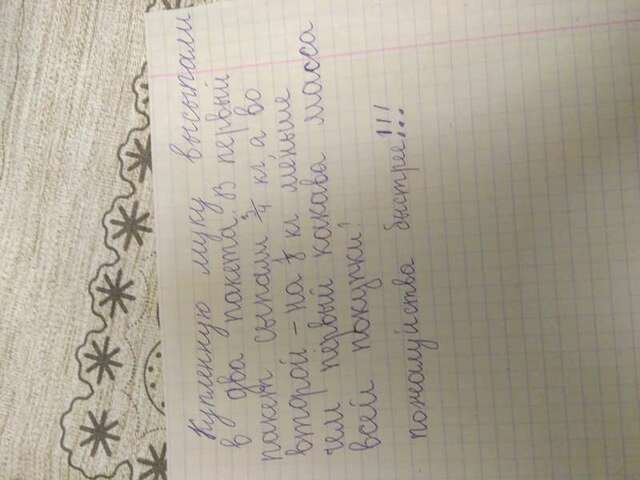 Купленную муку высыпали
в два пакета. В первый
пакет сыпали 3/4 кг а во
второй - на кг меньше
чем первый какава масса
всей покупки?
пожалуйства быстрее!!!